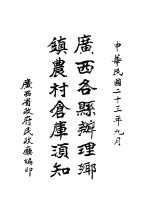 中華民國二十三年九月
廣西各縣辦理鄉
鎮農村倉庫須知
廣西省政府民政廳編印